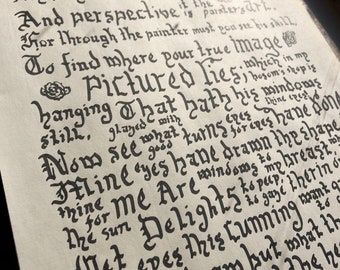 And perspective it is painter's art.
For through the painter must you see his skill,
To find where your true Image
Pictured lies, which in my
bosom's shop is
hanging That hath his windows
still, glazed with thine eyes
Now see what good turns eyes for eyes have done
Mine eyes have drawn thy shape
thine for me Are windows to my breast
the sun Delights to peep, to gaze therein
Yet eyes this cunning want
but what the